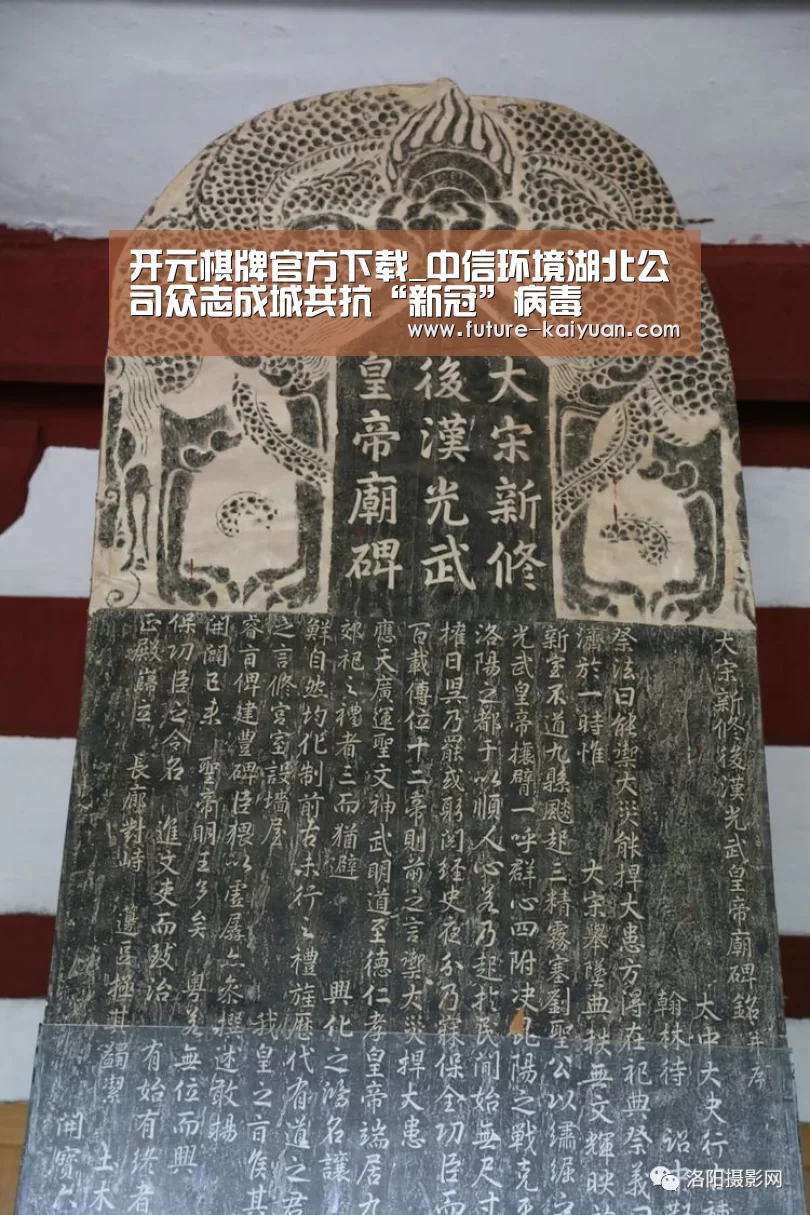 开元棋牌官方下载_中信环境湖北公
司众志成城共抗“新冠”病毒
www.future-kaiyuan.com
大宋新修
後漢光武
皇帝廟碑
大宋新修後漢光武皇帝廟碑銘并序
大中大夫行
翰林待 詔
祭法曰能禦大災能捍大患方得在祀典祭義
濟於一時惟 大宋舉墜典秩無文輝映
新室不道九縣飈起三精霧塞劉聖公以繡
光武皇帝攘臂一呼群心四附决昆陽之戰克
洛陽之都于以順人心爰乃起於民間始無尺寸
權日昃乃罷或躬閱經史夜分乃寐保全功臣而
百載傳位十二帝則前之言禦大災捍大患
應天廣運聖文神武明道至德仁孝皇帝端居九
郊祀之禮者三而猶避 興化之鴻名讓
鮮自然均化制前古未行之禮旌歷代有道之君
之言修宮室設墻屋 我皇之旨俟其
睿旨俾建豐碑臣猥以虛孱忝撰述敢揚
開闢已来 聖帝明王多矣 粤若無位而興
保功臣之令名 進文吏而致治 有始有終者
正殿巋立 長廊對峙 邊豆極其蠲潔 土木
開寶六
洛阳摄影网